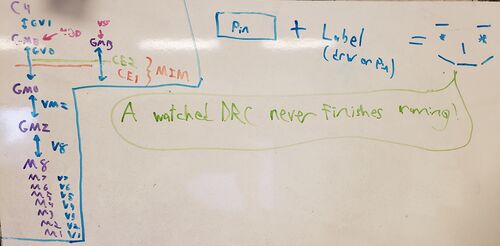 C4
GV1
GMB
GV0
CE2
CE1
MIM
GM0
VM2
GMZ
V8
M8
M7 V7
M6 V6
M5 V5
M4 V4
M3 V3
M2 V2
M1 V1
Pin + Label =
(drw or Pin)
A watched DRC never finishes running!